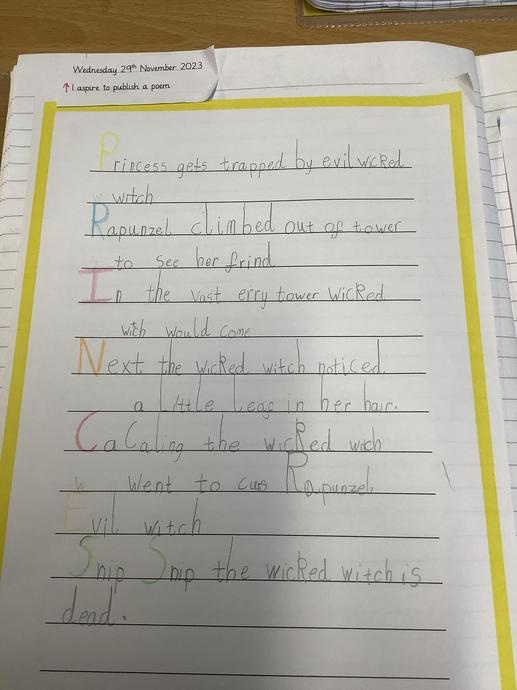 Wednesday 29th November 2023
↑ I aspire to publish a poem
Princess gets trapped by evil wicked
witch
Rapunzel climbed out of tower
to see her frind
In the vast erry tower wicked
with would come
Next the wicked witch noticed.
a little leag in her hair.
CaCaling the wicRed witch
went to cus Rapunzel
Evil witch
Snip Snip the wicRed witch is
dead.